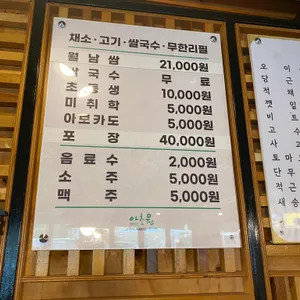 채소·고기·쌀국수·무한리필
월남쌈 21,000원
쌀국수 무료
초등생 10,000원
미취학 5,000원
아보카도 5,000원
포장 40,000원
음료수 2,000원
소주 5,000원
맥주 5,000원